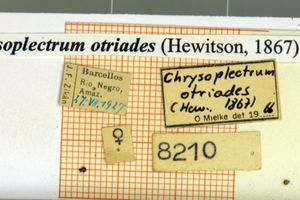 soplectrum otriades (Hewitson, 1867)
J. F. Zikán
Barcellos
Rio Negro,
Amaz.
17.VI.1927
Chrysoplectrum
otriades
(Hew., 1867)
O Mielke det 19
♀
8210